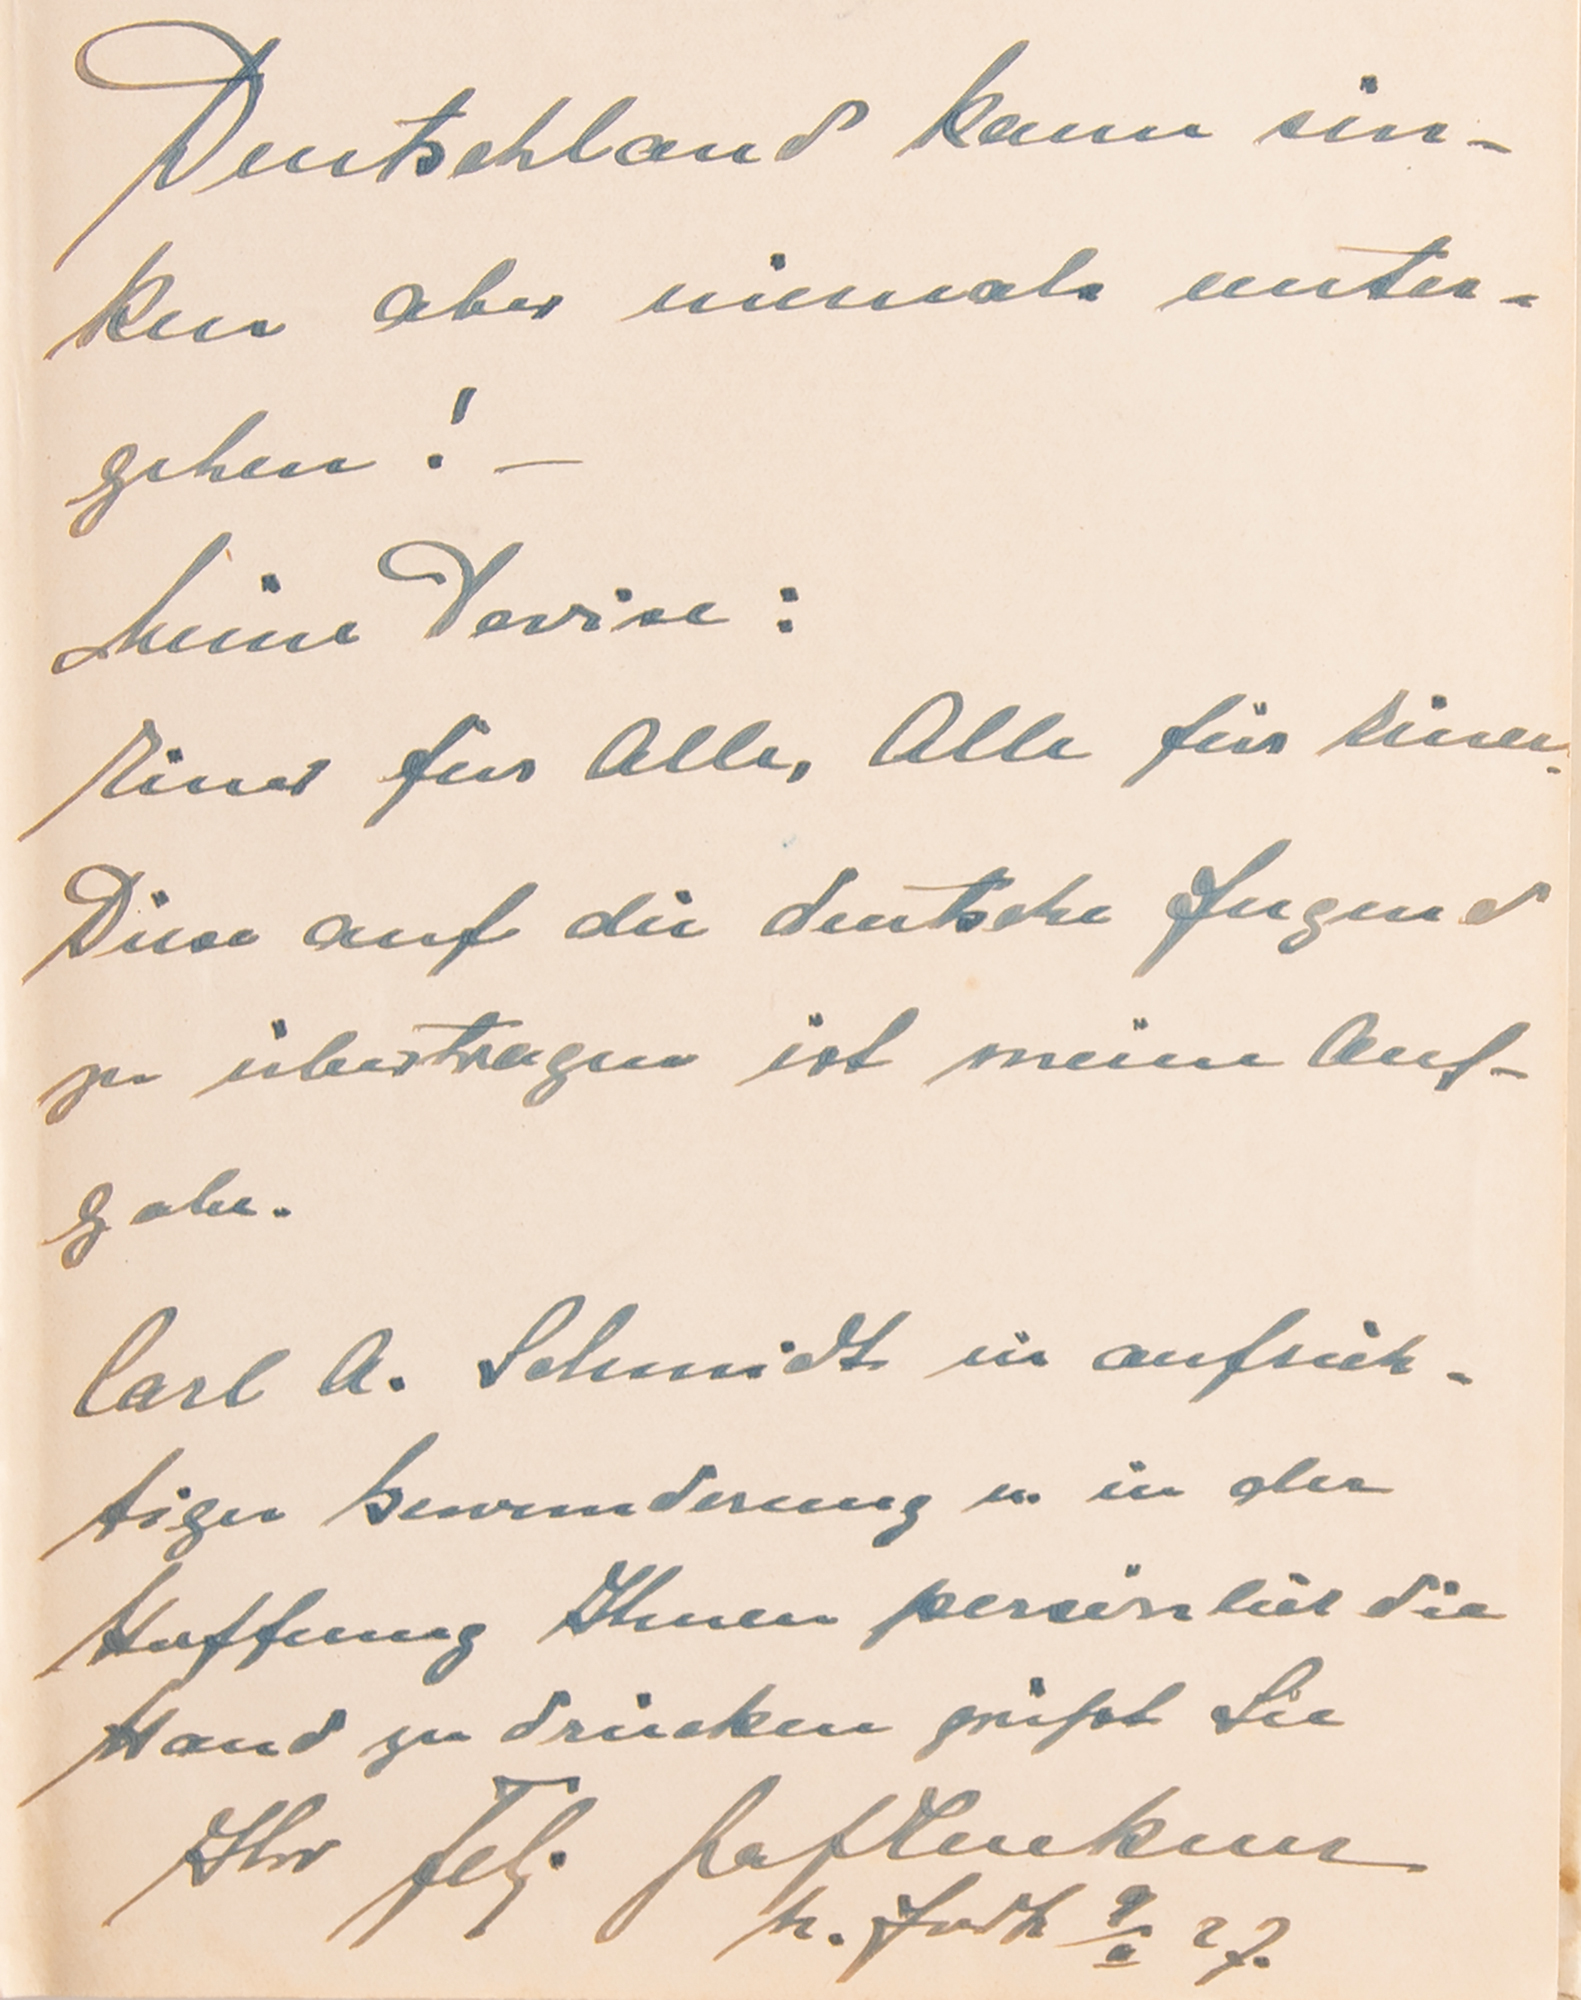 Deutschland kann sin-
ken aber niemals unter-
gehen! —
Meine Devise:
Einer für Alle, Alle für Einen.
Diese auf die deutsche Jugend
zu übertragen ist meine Auf-
gabe.
Carl A. Schmidt in aufrich-
tiger Bewunderung u. in der
Hoffnung Ihnen persönlich die
Hand zu drücken grüßt Sie
Ihr Felix
27.